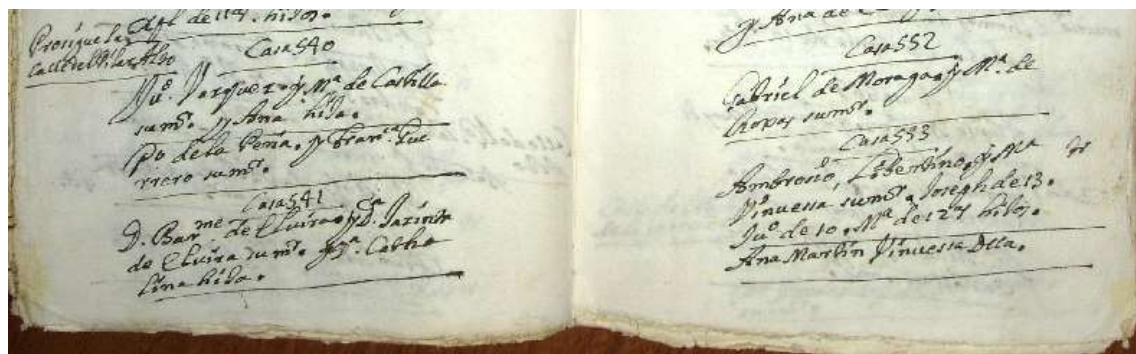 Prosigue la
Calle del Pilar Albo
de 11 as. hijos.
Casa 540
Juº. Vazquez. y Mª. de Castilla
sumr. y Ana hija.
Pº de la Peña. y Franca. Gue
rrero sumr.
Casa 541
D. Barme de Elvira. y Dª. Jacinta
de Elvira sumr. y Dª. Catha
lina hija.
y Ana de
Casa 552
Gabriel de Moraga. y Mª. de
Ropas sumr.
Casa 553
Ambrosio, Libertino. y Mª de
Yinuessa sumr. Joseph de 13.
Juº de 10. Mª de 12 as hijos.
Ana Martin Yinuessa Dlla.